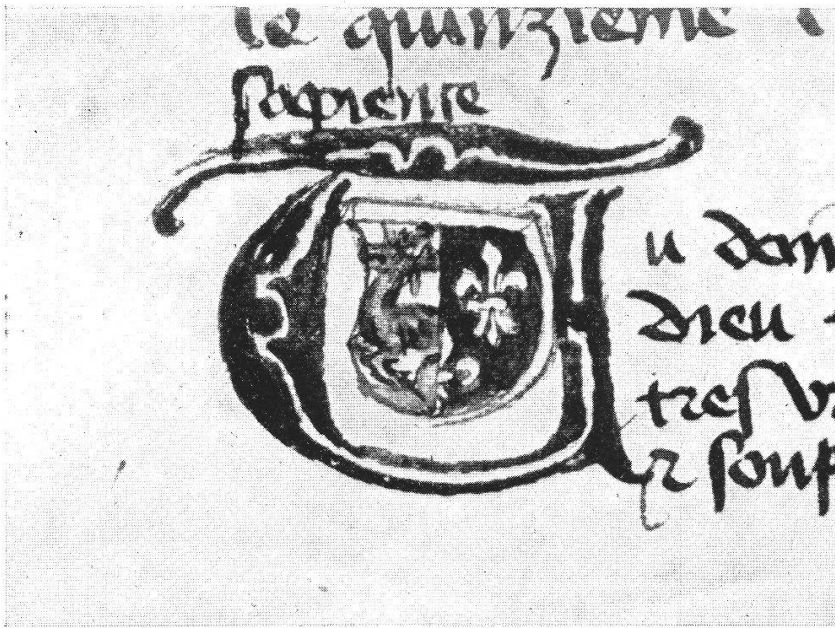 le quinzieme
sapience
Tu dom
dieu
tres